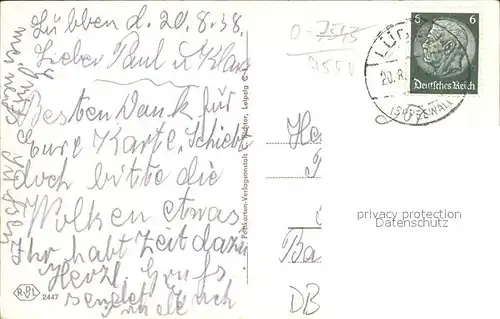 Lübben d. 20.8.38.
Lieber Paul u. Klara
Besten Dank für
eure Karte. Schiebt
doch bitte die
Wolken etwas
Ihr habt Zeit dazu
Herzl. Gruß
sendet Euch
O-7543
7550
6 6
Deutsches Reich
LÜB
20.8.
(SPREEWALD)
He
Ba
DB
Postkarten-Verlagsanstalt Richter, Leipzig
privacy protection
Datenschutz
RPL
2447